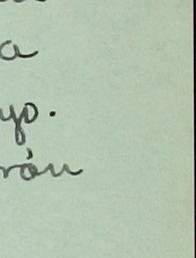 a
yo.
rán